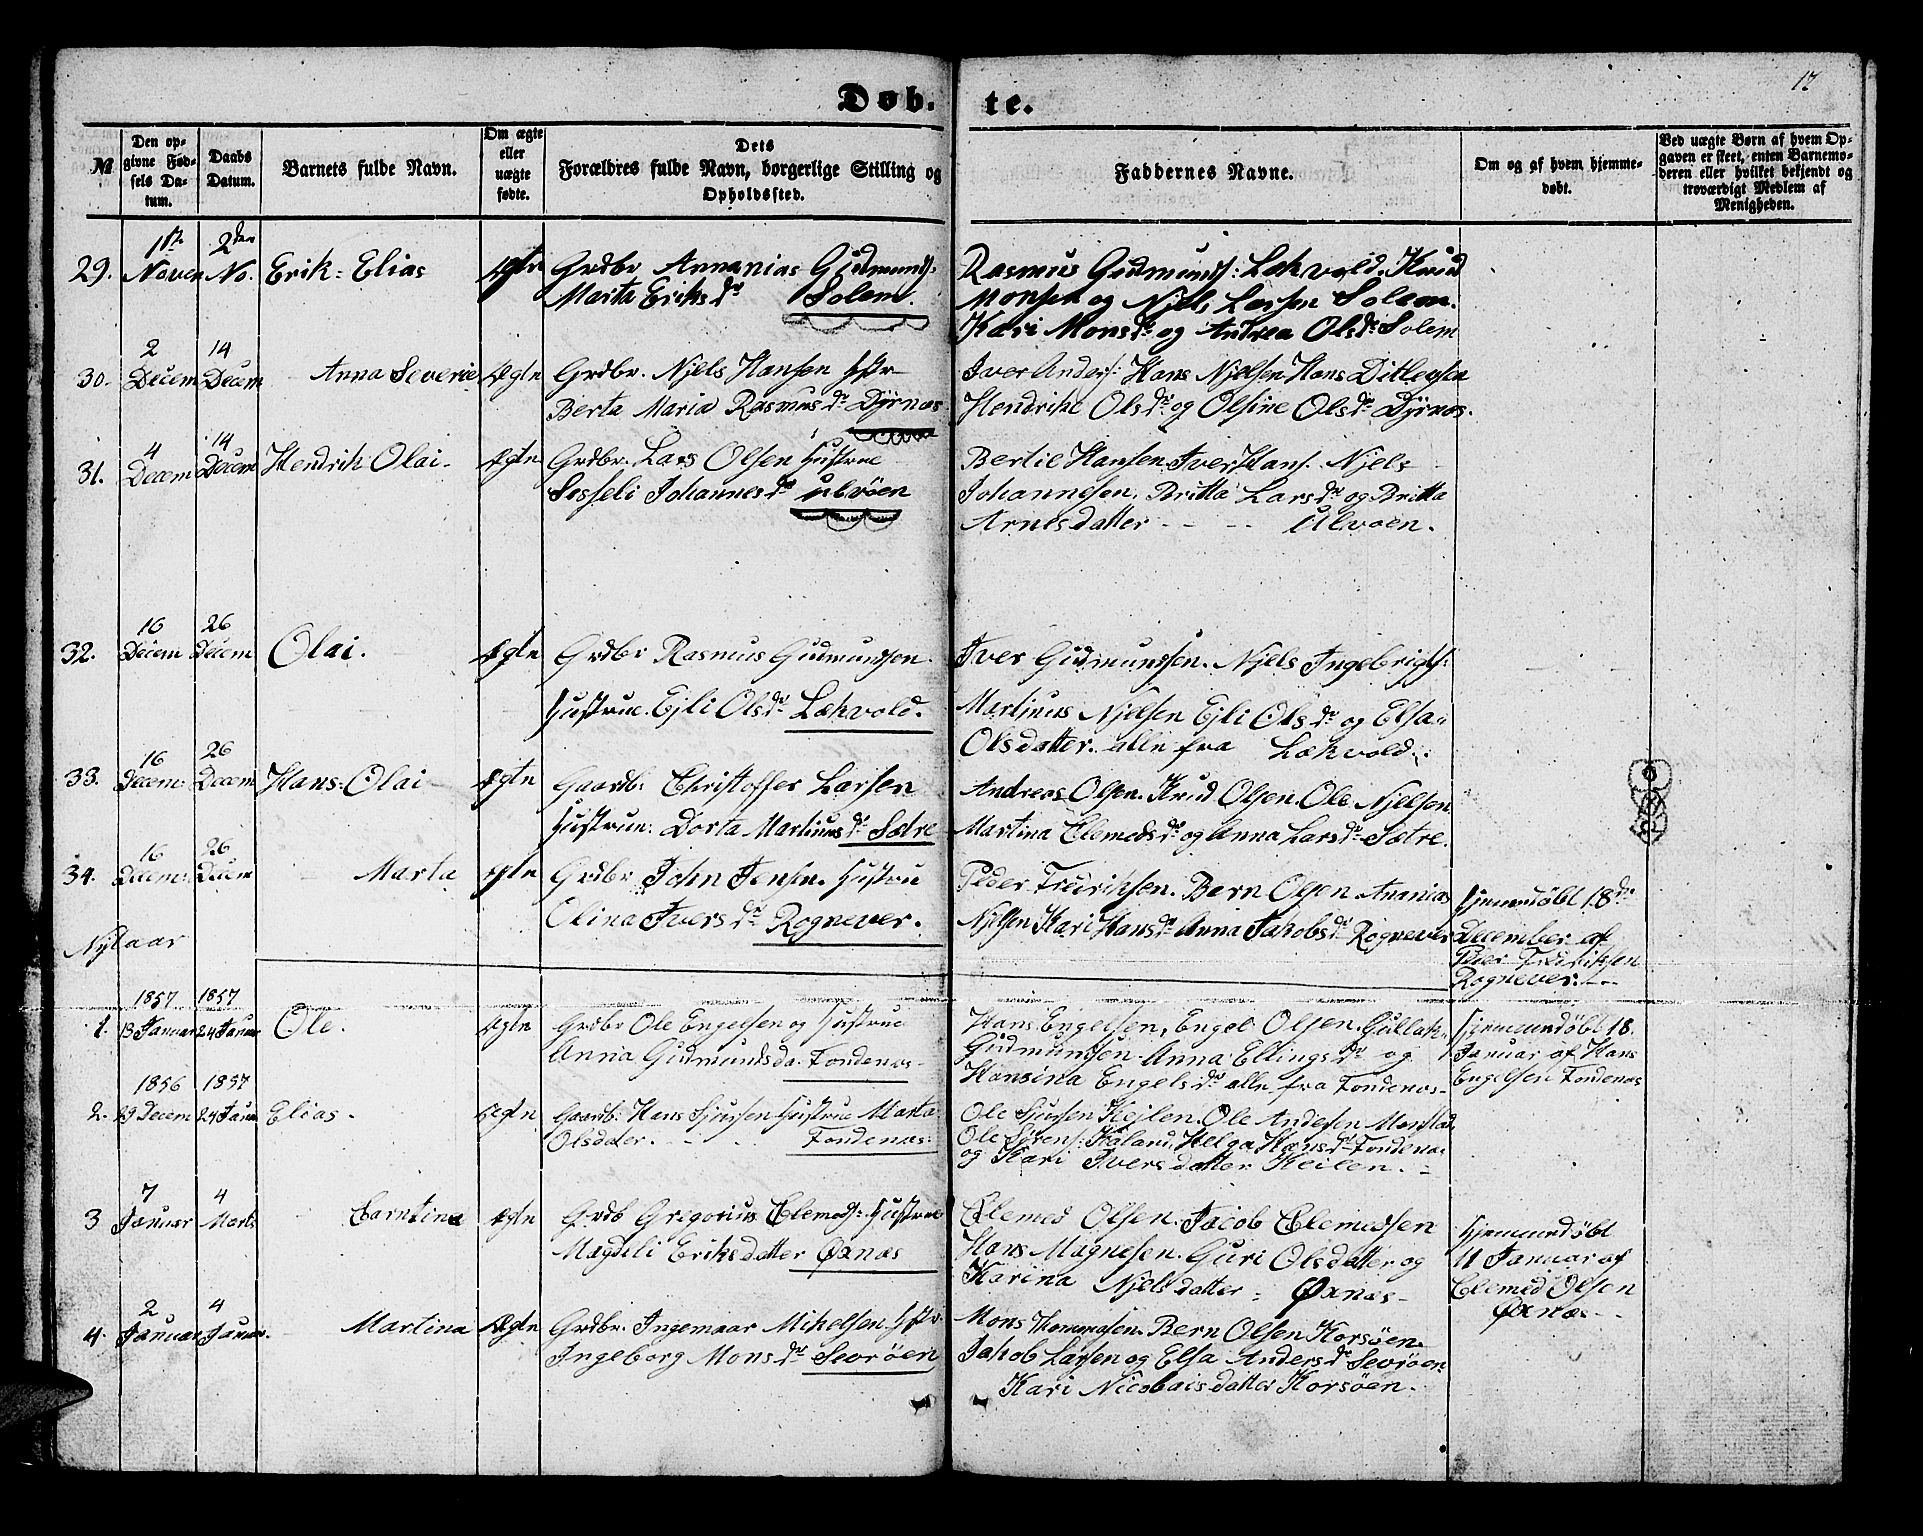 17
Døb. te.
№
Den op-
givne Fød-
sels Da-
tum.
Daabs
Datum.
Barnets fulde Navn.
Om ægte
eller
uægte
fødte.
Dets
Forældres fulde Navn, borgerlige Stilling og
Opholdssted.
Faddernes Navne.
Om og af hvem hjemme-
døbt.
Ved uægte Børn af hvem Op-
gaven er skeet, enten Barnemo-
deren eller hvilket bekjendt og
troværdigt Medlem af
Menigheden.
29. 1ste Novem 2den No. Erik Elias Ægte
Grdbr Annanias Gudmunds:
Marta Eriksdr Solem.
Rasmus Gudmunds: Lækvold. Knud
Monsen og Njels Larsen Solem.
Kari Monsdr og Andrea Olsdr Solem
30. 2 Decem 14 Decem Anna Severie Ægte
Grdbr. Njels Hansen Hstr
Berta Maria Rasmusdr Dyrnæs
Iver Anders: Hans Njelsen Hans Ditlevsen
Hendrike Olsdr og Olsine Olsdr Dyrnæs.
31. 4 Decem 14 Decem Hendrik Olai Ægte
Grdbr. Lars Olsen Hustrue
Sesseli Johannesdr Ulvøen
Bertie Hansen. Iver Hans. Njels
Johannesen. Britta Larsdr og Britta
Arnesdatter - - - Ulvøen.
32. 16 Decem 26 Decem Olai. Ægte
Grdbr Rasmus Gudmundsen.
Hustrue. Ejli Olsdr Lækvold.
Iver Gudmundsen. Njels Ingebrigts:
Martinus Njelsen Ejli Olsdr og Elsa
Olsdatter. alle fra Lækvold.
33. 16 Decem: 26 Decem Hans: Olai Ægte
Gaardb: Christoffer Larsen
Hustrue: Dorta Martinusdr Sætre
Andreas Olsen. Knud Olsen. Ole Njelsen
Martina Clemedsdr og Anna Larsdr Sætre.
34. 16 Decem: 26 Decem Marta Ægte
Grdbr John Jensen. Hustru
Olina Iversdr Rognever.
Peder Fredriksen. Bern Olsen Ananias
Njelsen Kari Hansdr Anna Jakobsdr Rognever
Hjemmedøbt 18de
December af
Peder Fredriksen
Rognever.
Nytaar
1. 1857 13 Januar 1857 24 Januar Ole. Ægte
Grdbr Ole Engelsen og Hustrue
Anna Gudmundsda. Tondenæs
Hans Engelsen, Engel Olsen. Gullak
Gudmundsen. Anna Ellingsdr og
Hansina Engelsdr alle fra Tondenæs
Hjemmedøbt 18.
Januar af Hans
Engelsen Tondenæs
2. 1856 29 Decem 1857 24 Janua Elias. Ægte
Gaardb: Hans Sjursen Hustrue Marta
Olsdater. Tondenæs:
Ole Sjursen Kejlen. Ole Andersen Monstad
Ole Sørens: Kaland, Helga Hansdr Tondenæs
og Kari Iversdatter Keilen.
3 7 Januar 4 Marts Carntina Ægte
Grdb Gregorius Clemeds: Hustrue
Magdeli Eriksdatter Øxnæs
Clemed Olsen. Jacob Clemedsen
Hans Magnesen. Guri Olsdatter og
Karina Njelsdatter Øxnæs
Hjemmedøbt
11 Januar af
Clemed Olsen
Øxnæs
4. 2 Januar 4 Januar. Martina Ægte
Grdbr. Ingemaar Mikelsen Hstr.
Ingeborg Monsdr Sevrøen
Mons Thommasen. Bern Olsen Korsøen
Jakob Larsen og Elsa Andersdr Sevrøen
Kari Nicolaisdatter Korsøen.